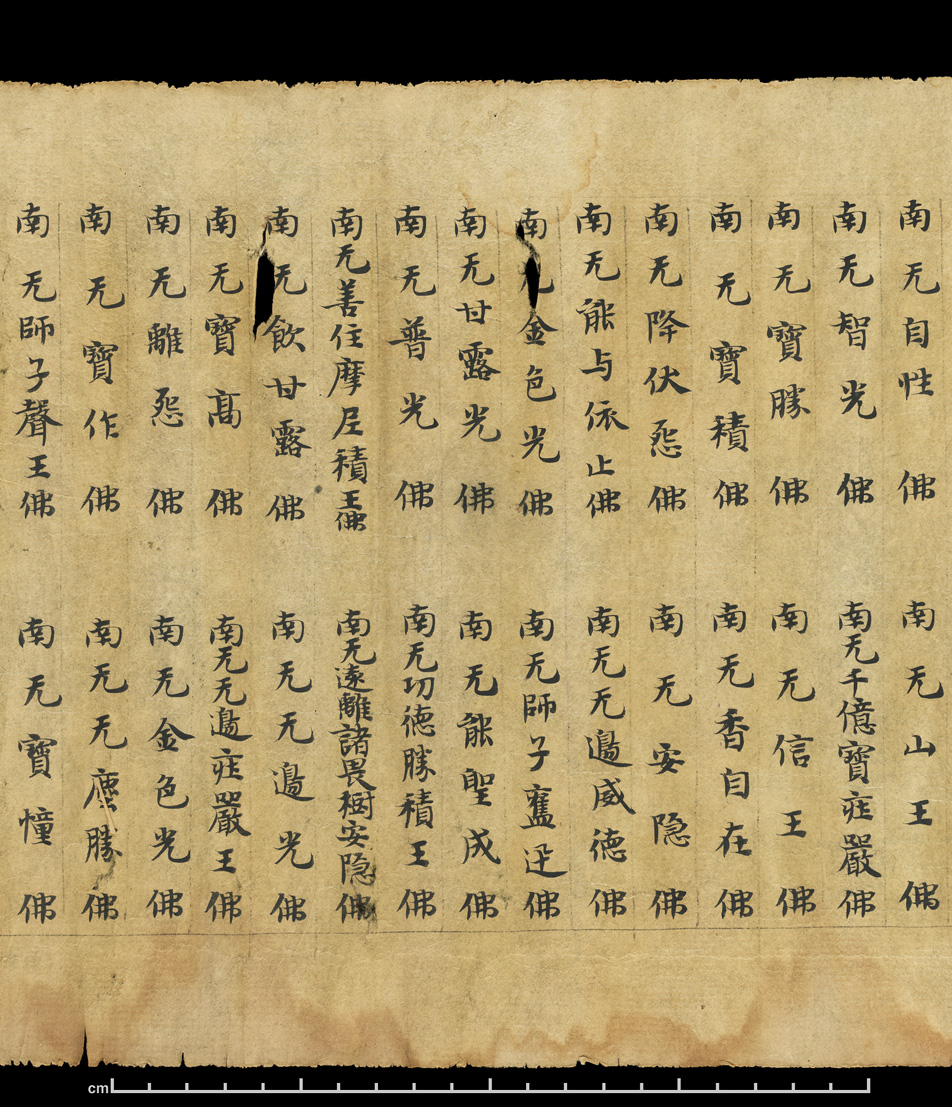 南无自性佛 南无山王佛
南无智光佛 南无千億寶莊嚴佛
南无寶勝佛 南无信王佛
南无寶積佛 南无香自在佛
南无降伏怨佛 南无安隐佛
南无能与依止佛 南无无邊威德佛
南无金色光佛 南无師子奮迅佛
南无甘露光佛 南无能聖成佛
南无普光佛 南无功德勝積王佛
南无善住摩尼積王佛 南无遠離諸畏樹安隐佛
南无飲甘露佛 南无无邊光佛
南无寶髙佛 南无无邊莊嚴王佛
南无離怨佛 南无金色光佛
南无寶作佛 南无无塵勝佛
南无師子聲王佛 南无寶憧佛
cm